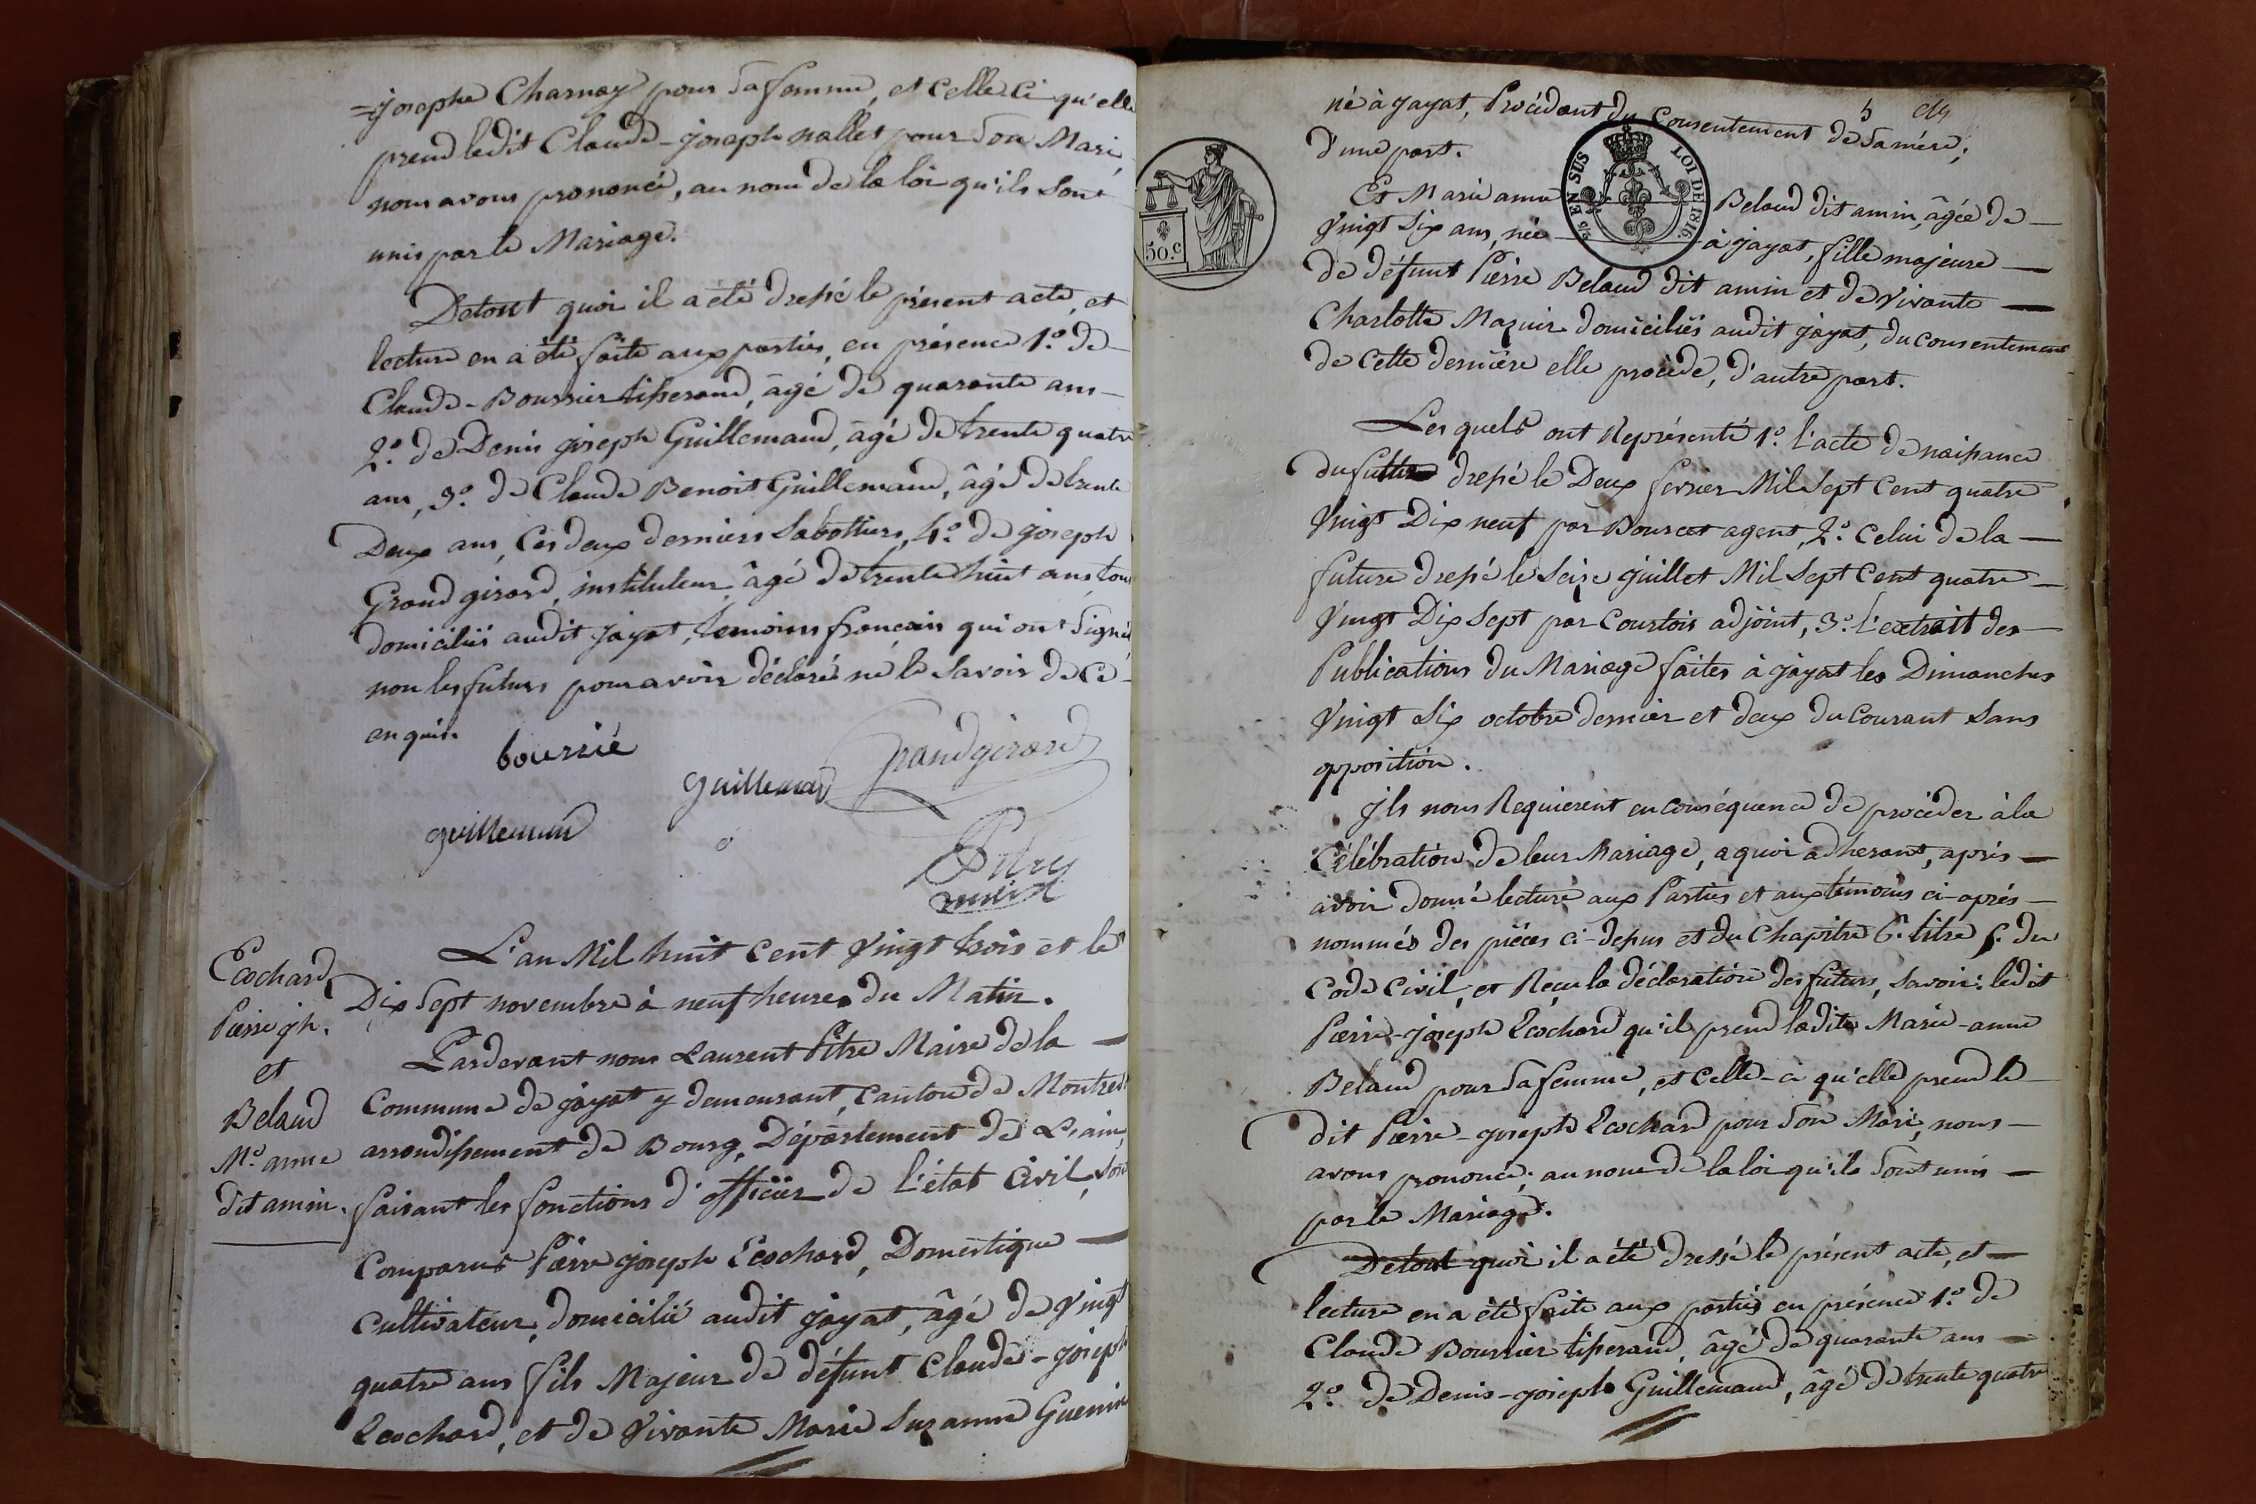 =josephe Charnay pour sa femme, et celle ci qu'elle
prend ledit Claude-joseph nallet pour son Mari,
nous avons prononcé, au nom de la loi qu'ils sont
unis par le Mariage.
De tout quoi il a été dressé le présent acte, et
lecture en a été faite aux parties, en présence 1.º de
Claude-Bourrier tisserand, âgé de quarante ans
2.º de Denis joseph Guillemaud, âgé de trente quatre
ans, 3.º de Claude Benoit Guillemaud, âgé de trente
Deux ans, ces deux derniers Sabottiers, 4.º de joseph
Grand girard, instituteur, âgé de trente huit ans, tous
domiciliés audit jayat, temoins français qui ont signé,
non les futurs pour avoir déclaré ne le savoir de ce
enquis.
bourrié
guillemaud
Grandgirard
guillemaud
Pitre
maire
Ecochard
Pierre jph.
et
Belaud
Me. anne
dit amin.
L'an Mil huit cent vingt trois et le
Dix Sept novembre à neuf heures du Matin.
Pardevant nous Laurent Pitre Maire de la
Commune de jayat y demeurant, canton de Montrevel
arrondissement de Bourg, Département de L'ain,
faisant les fonctions d'officier de l'état Civil, sont
Comparus Pierre joseph Ecochard, Domestique
Cultivateur, domicilié audit jayat, âgé de vingt
quatre ans fils Majeur de défunt Claude-joseph
Ecochard, et de vivante Marie Suzanne Guenin
né à jayat, Procédant du Consentement de sa mère,
d'une part.
50.c
EN SUS
LOI DE 1816.
Et Marie anne Belaud dit amin, âgée de
Vingt Six ans, née à jayat, fille majeure
de défunt Pierre Belaud dit amin et de vivante
Charlotte Mazuir domiciliés audit jayat, du consentement
de cette dernière elle procède, d'autre part.
Les quels ont Représenté 1.º l'acte de naissance
du futur dressé le Deux fevrier Mil Sept Cent quatre
Vingt Dix neuf par Bourcet agent, 2.º Celui de la
future dressé le Seize juillet Mil Sept Cent quatre
Vingt Dix Sept par Courtois adjoint, 3.º l'extrait des
Publications du Mariage faites à jayat les Dimanches
Vingt Six octobre dernier et deux du Courant sans
opposition.
jls nous Requierent en conséquence de procéder à la
Célébration de leur Mariage, a quoi adherant, après
avoir donné lecture aux Parties et aux témoins ci-après
nommés des pièces ci-dessus et du chapitre 6. titre 5. du
Code Civil, et Reçu la déclaration des futurs, savoir: ledit
Pierre-joseph Ecochard qu'il prend ladite Marie-anne
Belaud pour sa femme, et celle-ci qu'elle prend le
dit Pierre-joseph Ecochard pour son Mari, nous
avons prononcé, au nom de la loi qu'ils sont unis
par le Mariage.
De tout quoi il a été dressé le présent acte, et
lecture en a été faite aux parties en présence 1.º de
Claude Bourrier tisserand, âgé de quarante ans
2.º de Denis-joseph Guillemaud, âgé de trente quatre